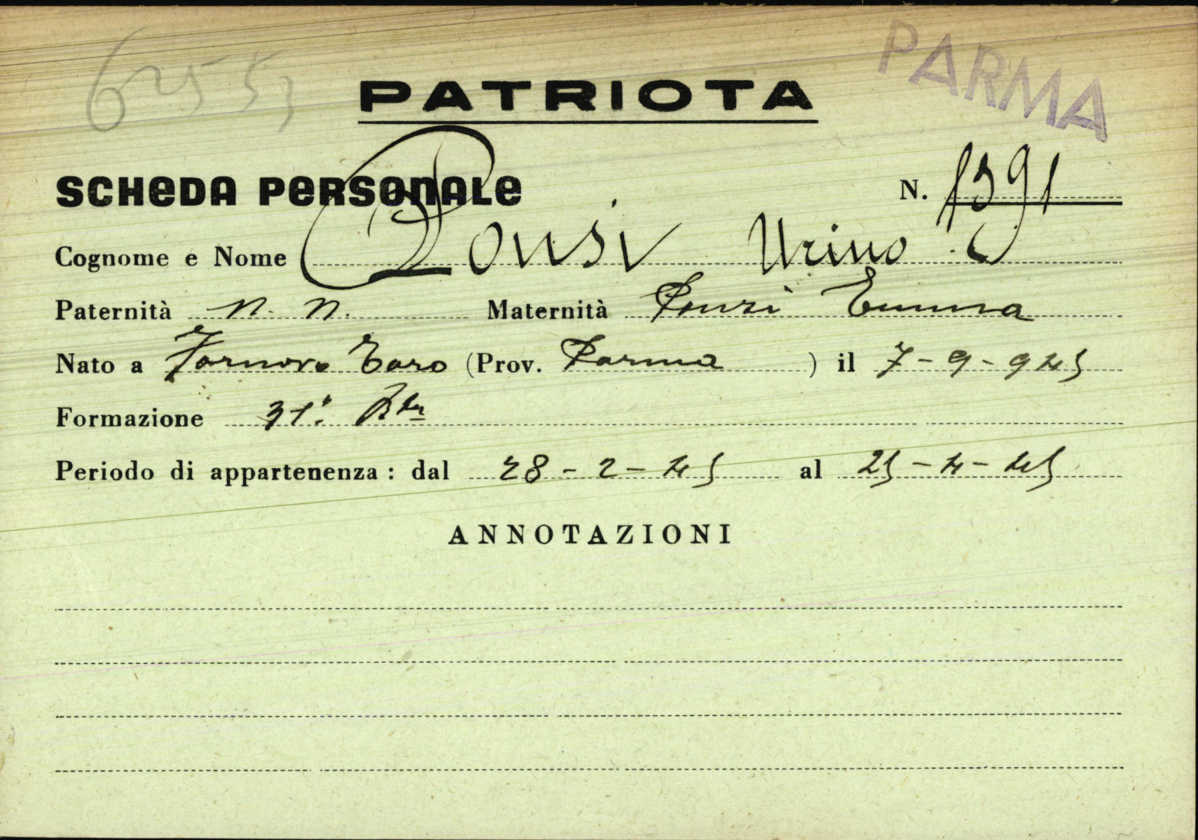 6253
PARMA
PATRIOTA
SCHEDA PERSONALE N. 1391
Cognome e Nome Ponsi Urino
Paternità n. n. Maternità Ponzi Emma
Nato a Fornovo Taro (Prov. Parma ) il 7-9-925
Formazione 31ª
Periodo di appartenenza: dal 28-2-45 al 25-4-45
ANNOTAZIONI